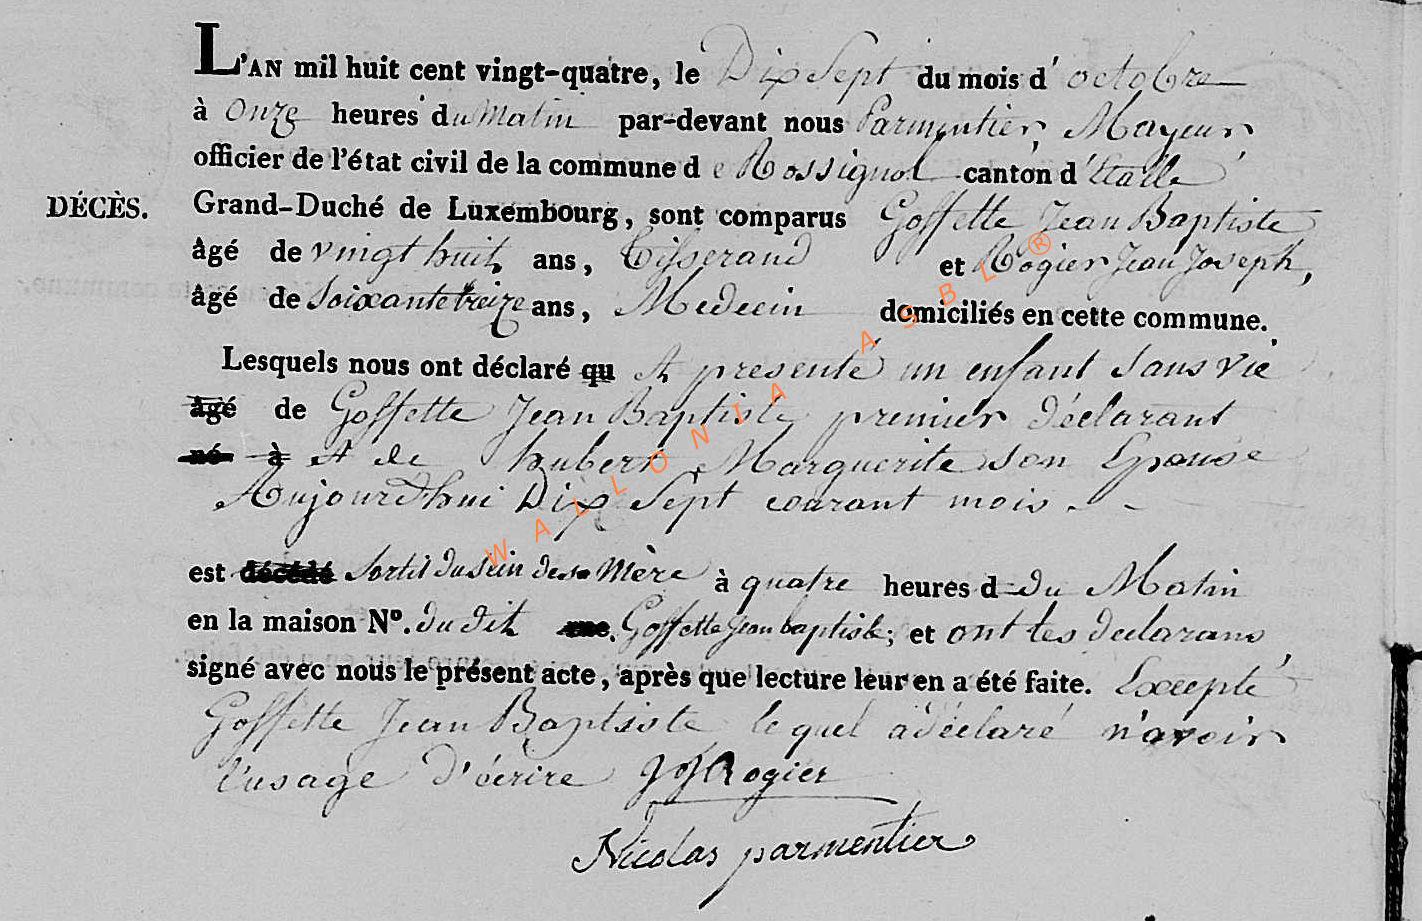 L'AN mil huit cent vingt-quatre, le Dix Sept du mois d'octobre
à onze heures du Matin par-devant nous Parmentier Mayeur
officier de l'état civil de la commune de Rossignol canton d'Etalle
DÉCÈS.
Grand-Duché de Luxembourg, sont comparus Goffette Jean Baptiste
âgé de vingt huit ans, Tisserand et Rogier Jean Joseph,
âgé de Soixante treize ans, Medecin domiciliés en cette commune.
Lesquels nous ont déclaré qu et presenté un enfant Sans vie
âgé de Goffette Jean Baptiste premier déclarant
né à et de hubert Marguerite son Epouse
Aujourd'hui Dix Sept courant mois
est décédé Sortit du Sein de sa Mère à quatre heures d du Matin
en la maison N°. du dit rue. Goffette Jean baptiste; et ont les déclarans
signé avec nous le présent acte, après que lecture leur en a été faite. Excepté
Goffette Jean Baptiste le quel à déclaré n'avoir
l'usage d'écrire JJRogier
Nicolas parmentier
WALLONIA ASBL®